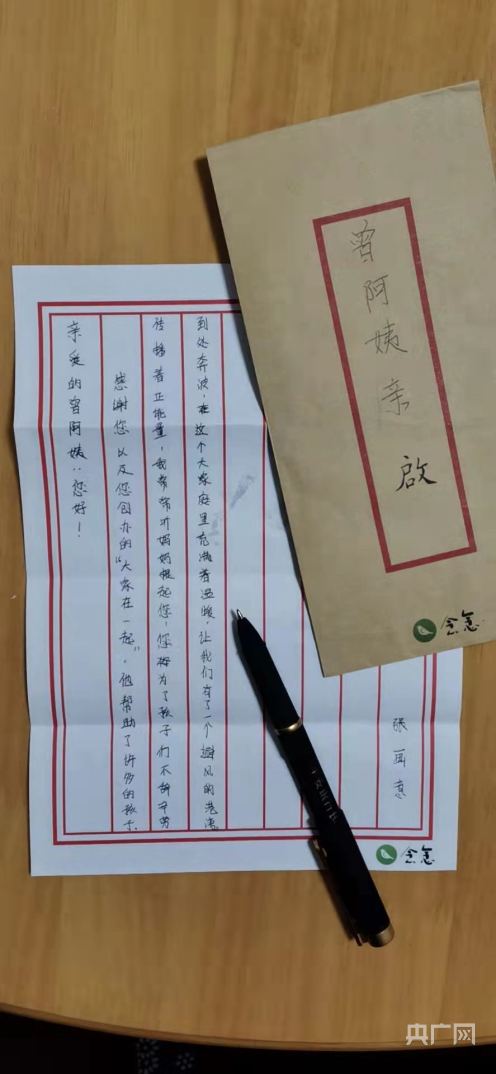 亲爱的曾阿姨：您好！
感谢您以及您创办的“大家在一起”，他帮助了许多的孩子，
传播着正能量，我常常听妈妈提起您，您为了孩子们不辞辛劳
到处奔波，在这个大家庭里充满着温暖，让我们有了一个避风的港湾。
张画意
曾阿姨亲啟
央广网